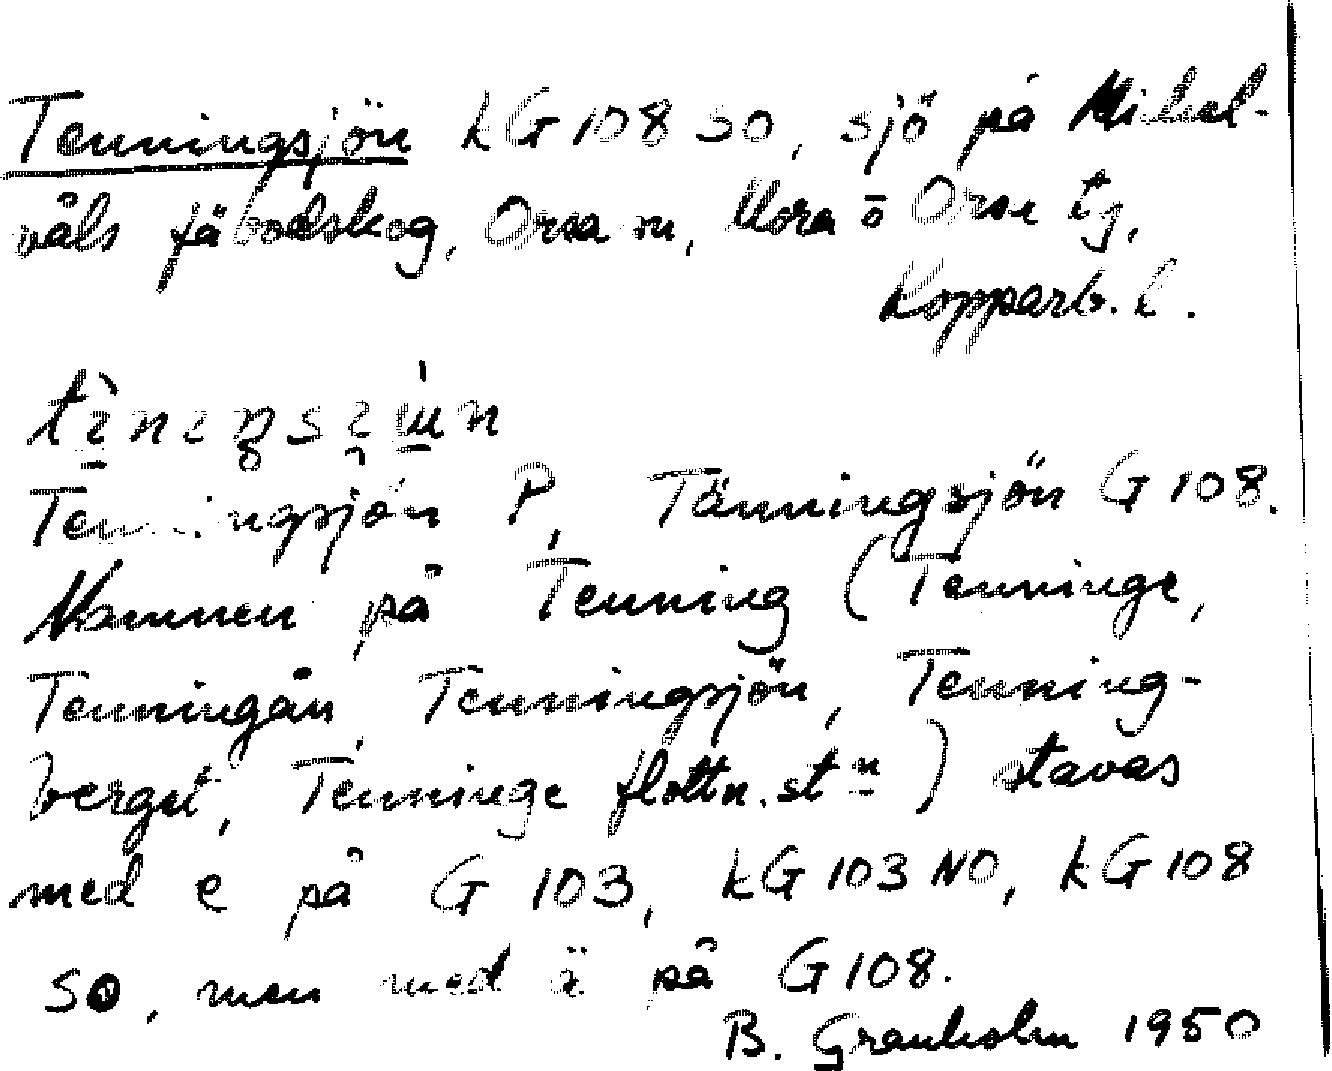 Tenningsjön kG 108 SO, sjö på Mickel-
väls fäbodskog, Orsa sn, Mora o Orsa tg,
Kopparb. l.
Tenningsjön P, Tänningsjön G 108.
Namnen på Tenning (Tenninge,
Tenningån, Tenningsjön, Tenning-
berget, Tenninge flottn. stn) stavas
med e på G 103, kG 103 NO, kG 108
SO, men med ä på G 108.
B. Granholm 1950